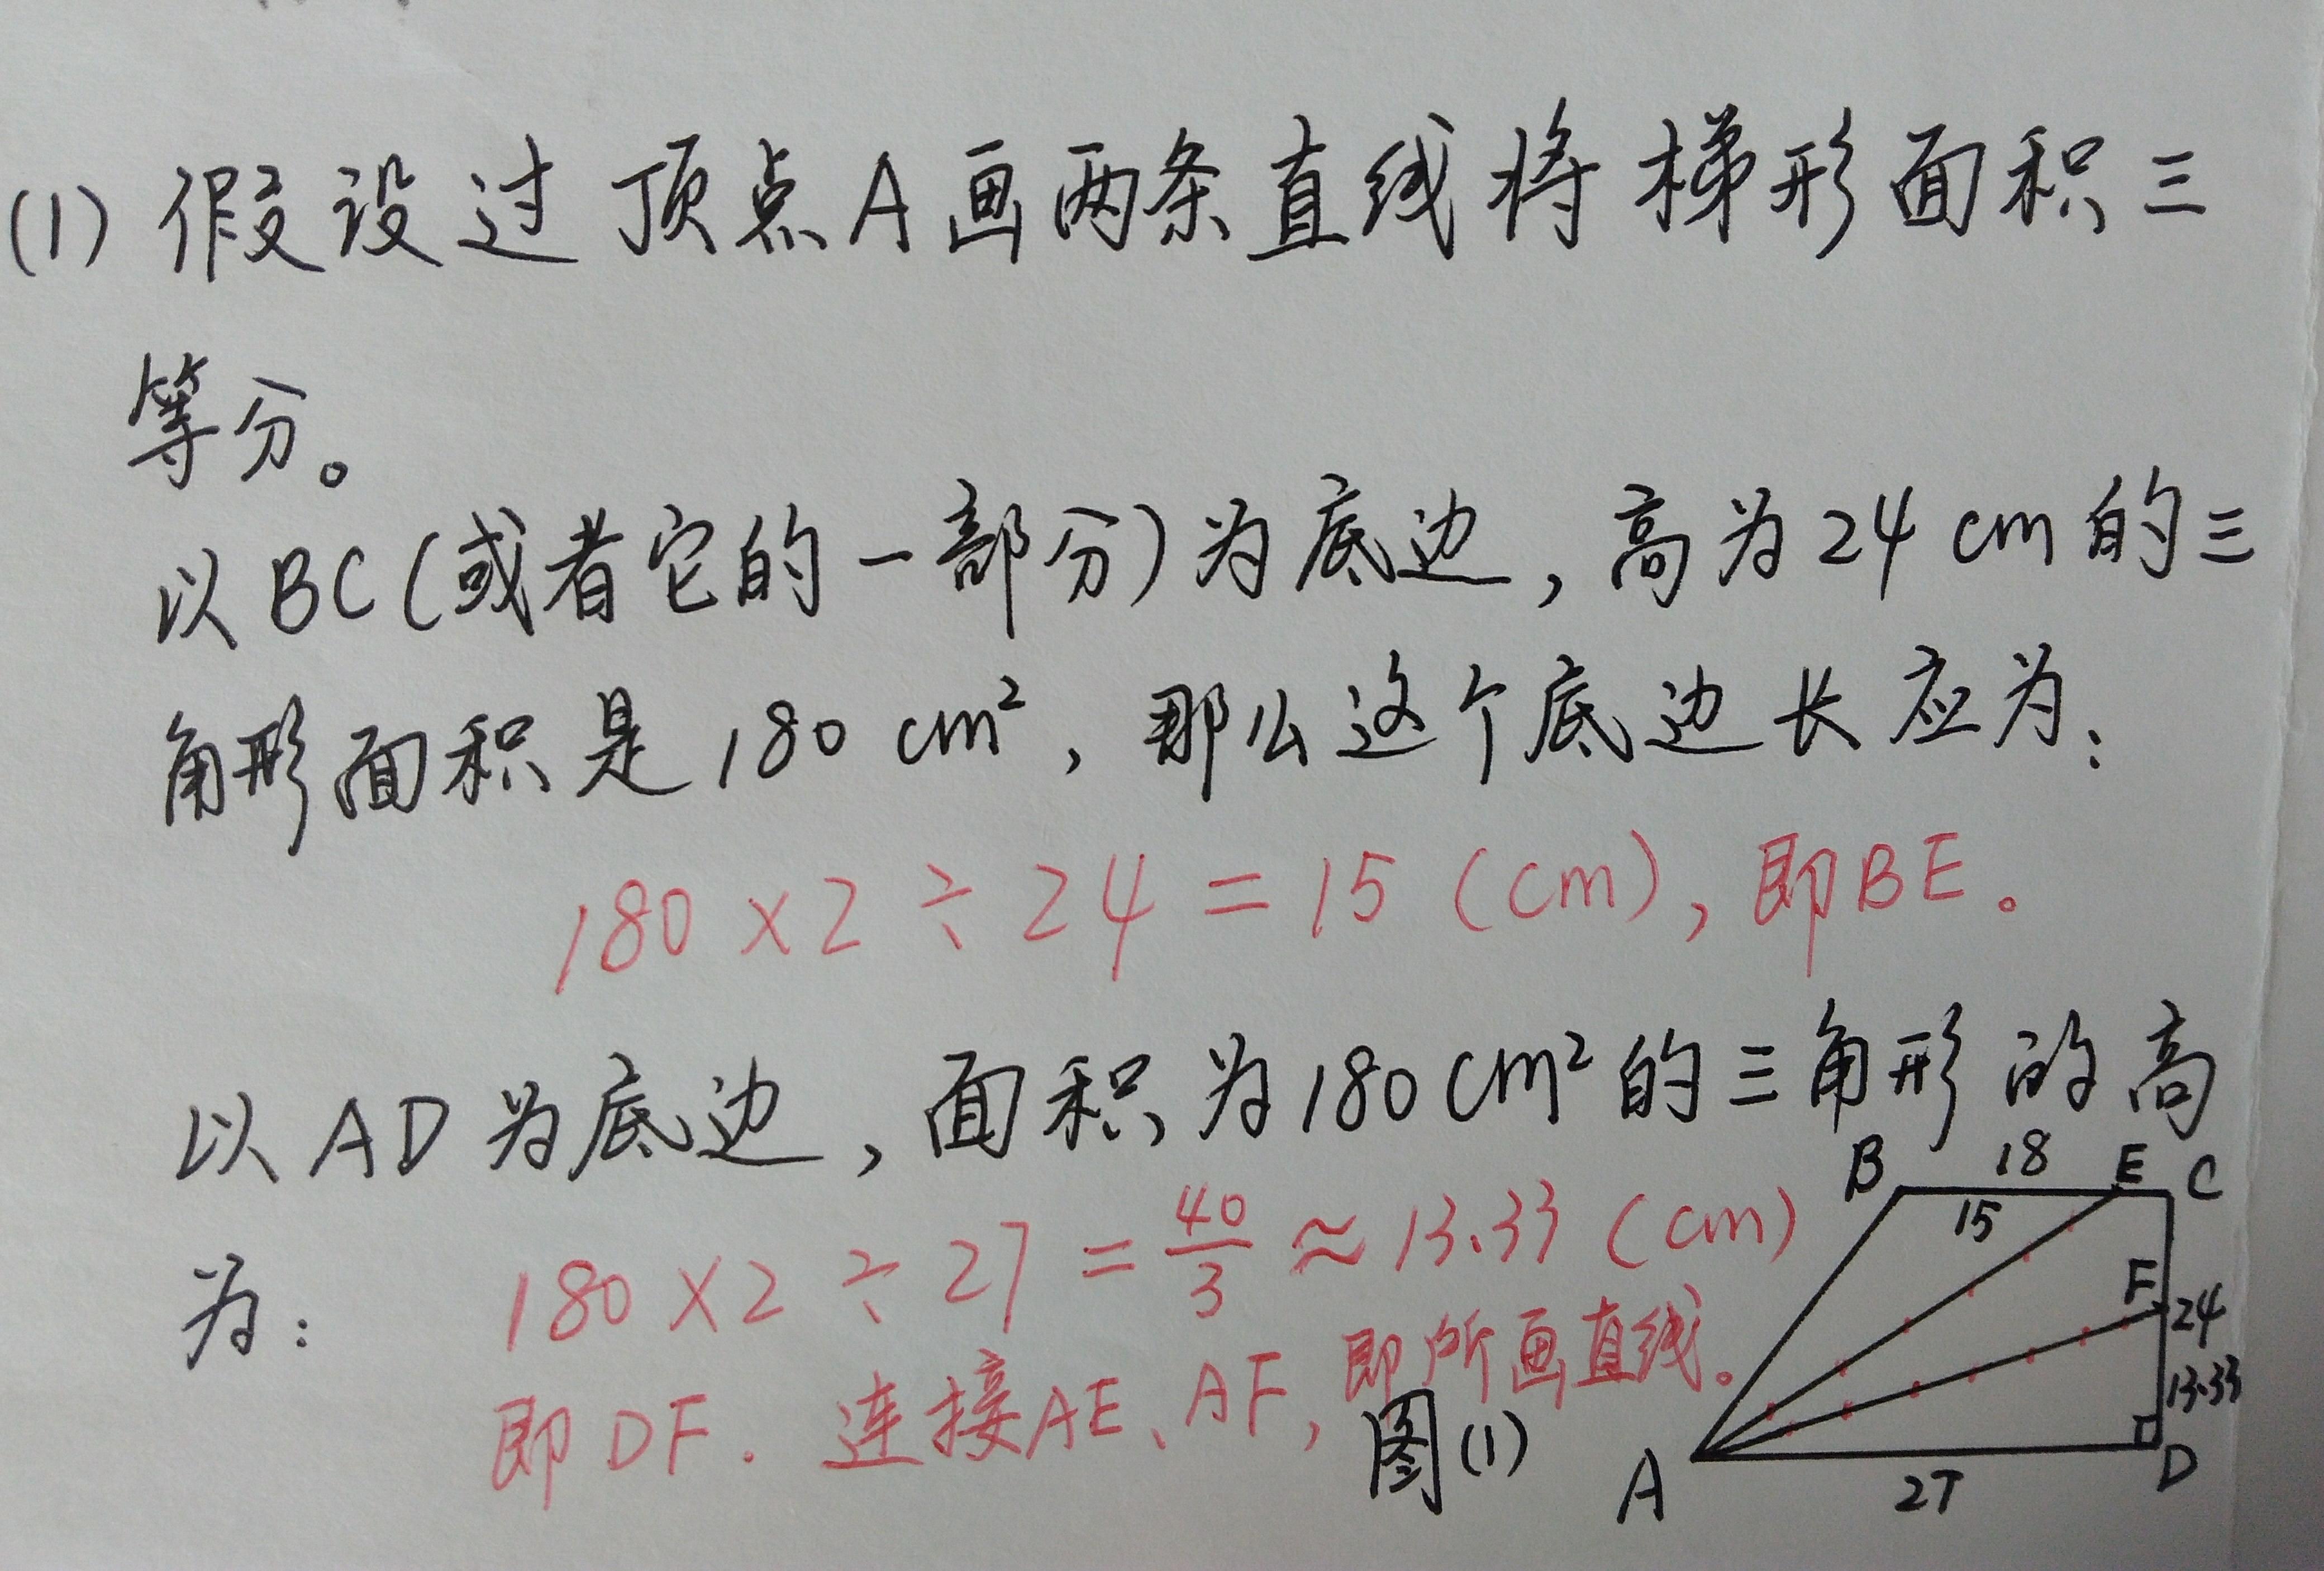 (1) 假设过顶点A画两条直线将梯形面积三
等分。
以BC(或者它的一部分)为底边,高为24 cm的三
角形面积是180 cm²,那么这个底边长应为:
180×2÷24=15(cm),即BE。
以AD为底边,面积为180cm²的三角形的高
为: 180×2÷27=40/3≈13.33(cm)
即DF. 连接AE、AF,即所画直线。
图(1)
B 18 E C
15
F
24
13.33
A 27 D